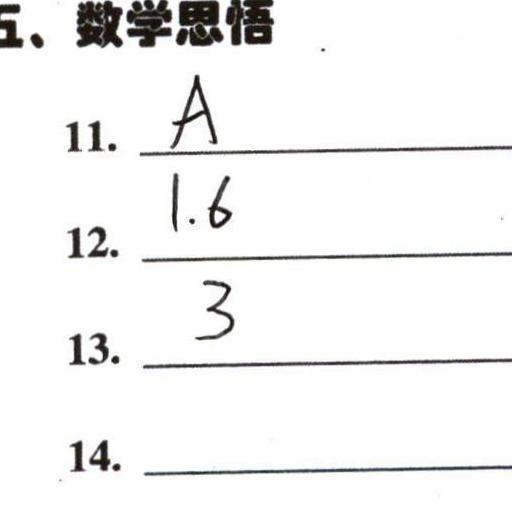 五、数学思悟
11. A
12. 1.6
13. 3
14.